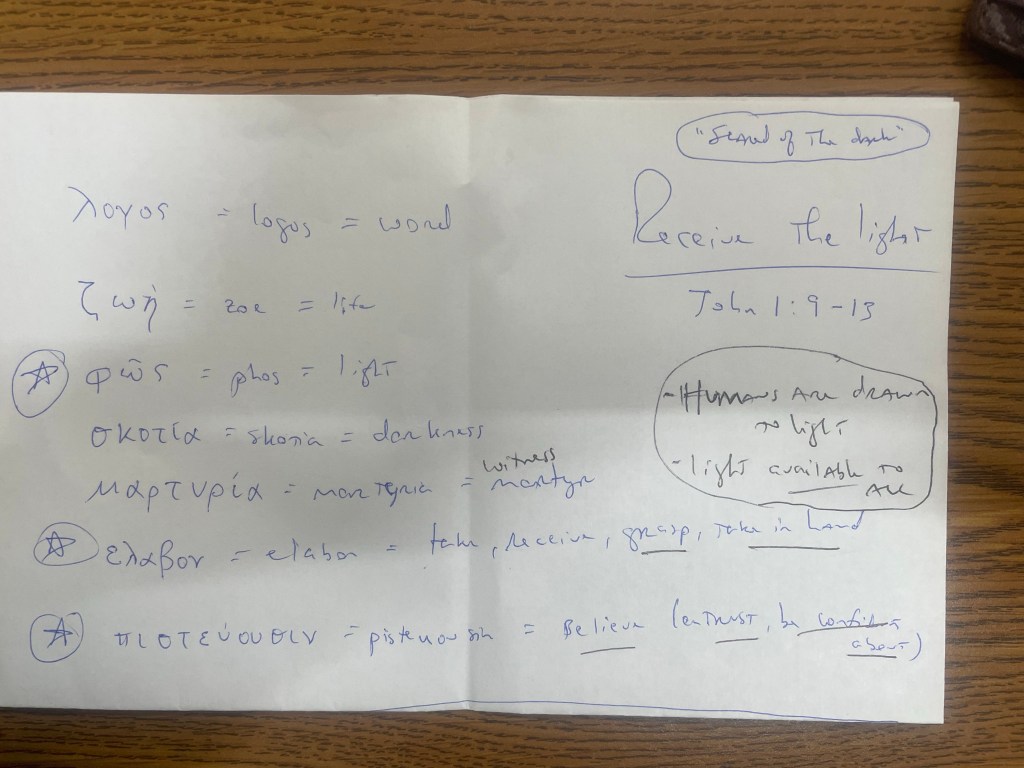 "Scared of The dark"
Receive The light
John 1:9-13
- Humans are drawn
to light
- light available to
All
λογος = logos = word
ζωή = zoe = life
φῶς = phos = light
σκοτία = skotia = darkness
witness
μαρτυρία = martyria = martyr
ελαβον = elabon = take, receive, grasp, Take in hand
πιστεύουσιν = pisteuousin = Believe (enTrust, be confident
about)